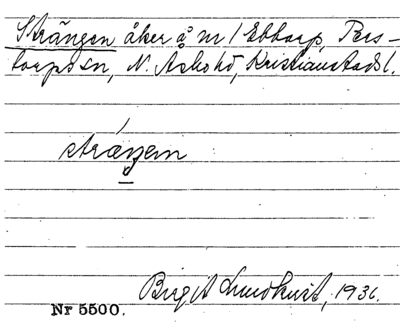 Strängen åker å nr 1 Ebbarp, Pers-
torps sn, N. Åsbo hd, Kristianstads l.
strängen
Birgit Lundkvist, 1936.
Nr 5500.